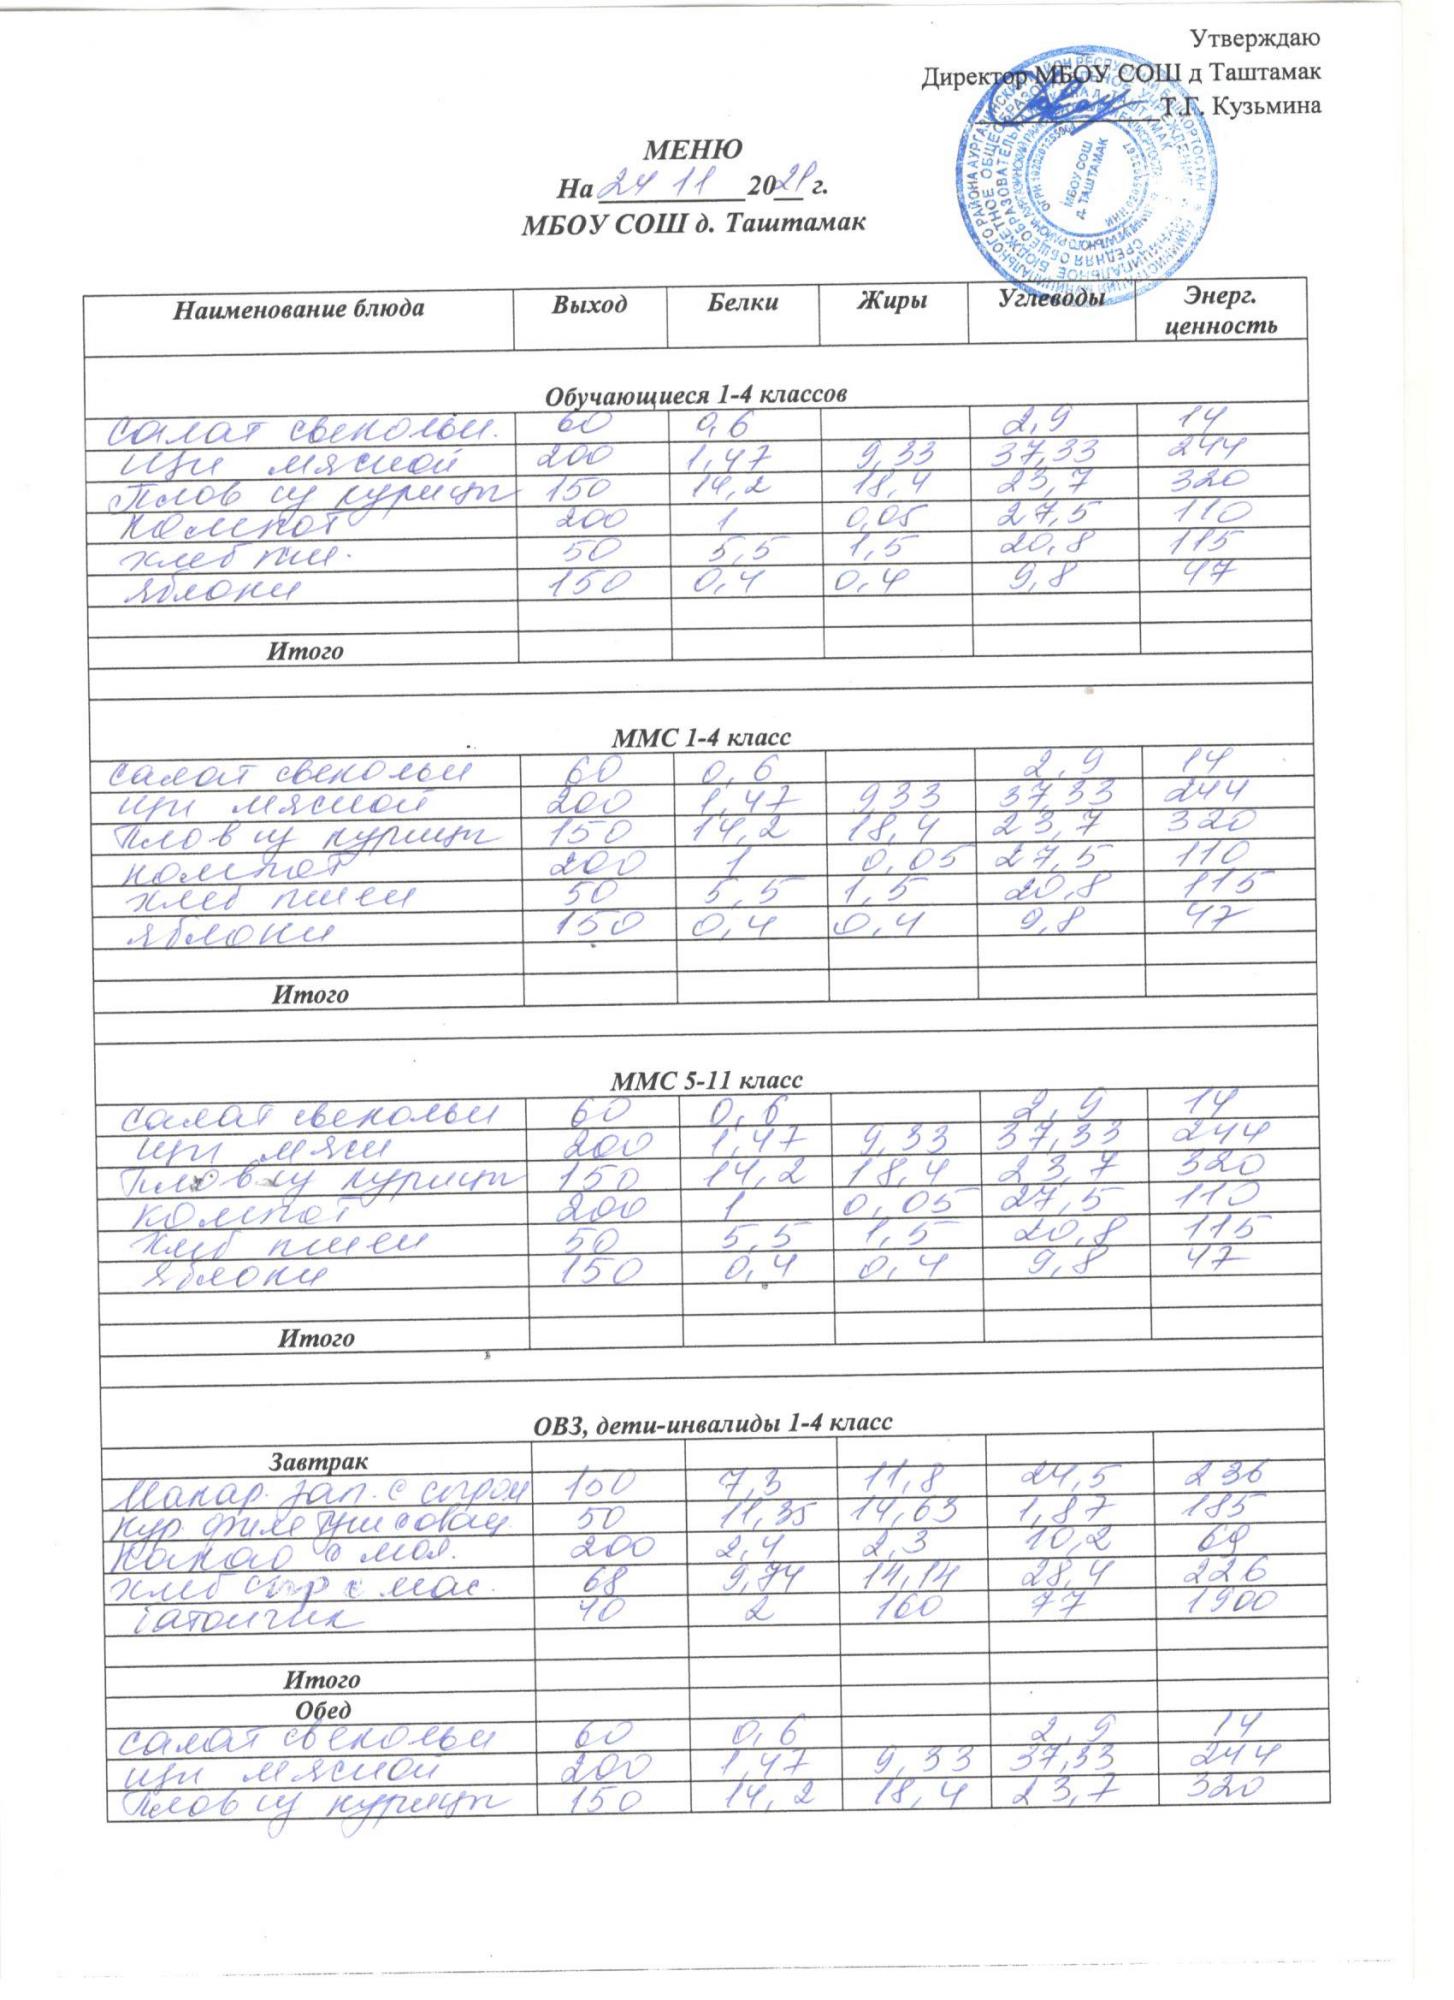 Утверждаю
Директор МБОУ СОШ д Таштамак
Т.Г. Кузьмина
МБОУ СОШ
Д. ТАШТАМАК
МЕНЮ
На 24 11 2021 г.
МБОУ СОШ д. Таштамак
Наименование блюда Выход Белки Жиры Углеводы Энерг. ценность
Обучающиеся 1-4 классов
салат свекольн. 60 0,6 2,9 14
щи мясной 200 1,47 9,33 37,33 244
Плов из курицы 150 14,2 18,4 23,7 320
компот 200 1 0,05 27,5 110
хлеб пш. 50 5,5 1,5 20,8 115
яблоки 150 0,4 0,4 9,8 47
Итого
ММС 1-4 класс
салат свекольн 60 0,6 2,9 14
щи мясной 200 1,47 933 37,33 244
Плов из курицы 150 14,2 18,4 23,7 320
компот 200 1 0,05 27,5 110
хлеб пшен 50 5,5 1,5 20,8 115
яблоки 150 0,4 0,4 9,8 47
Итого
ММС 5-11 класс
салат свекольн 60 0,6 2,9 14
щи мясн 200 1,47 9,33 37,33 244
Плов из курицы 150 14,2 18,4 23,7 320
компот 200 1 0,05 27,5 110
хлеб пшен 50 5,5 1,5 20,8 115
яблоки 150 0,4 0,4 9,8 47
Итого
ОВЗ, дети-инвалиды 1-4 класс
Завтрак
Макар. зап. с сыром 150 7,3 11,8 24,5 236
кур. филе 50 11,35 14,63 1,87 185
Какао с мол. 200 2,4 2,3 10,2 69
хлеб сыр с мас. 68 9,74 14,14 28,4 226
батончик 40 2 160 77 1900
Итого
Обед
салат свекольн 60 0,6 2,9 14
щи мясной 200 1,47 9,33 37,33 244
Плов из курицы 150 14,2 18,4 23,7 320